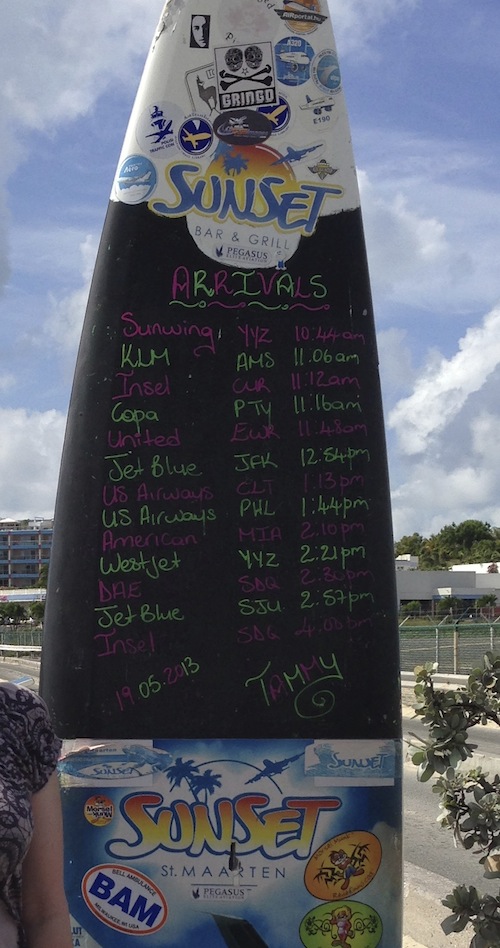 AIRportal.hu
A320
GRINGO
E190
SUNSET
BAR & GRILL
PEGASUS
ARRIVALS
Sunwing YYZ 10:44am
KLM AMS 11.06am
Insel CUR 11:12am
Copa PTY 11.16am
United EWR 11:48am
JetBlue JFK 12:54pm
US Airways CLT 1:13pm
US Airways PHL 1:44pm
American MIA 2.10pm
Westjet YYZ 2:21pm
DAE SDQ 2:30pm
JetBlue SJU 2:57pm
Insel SDG 4:00pm
19.05.2013 TAMMY
SUNSET SUNSET
SUNSET
St. MAARTEN
PEGASUS
BELL AMBULANCE
BAM
MILWAUKEE, WI USA